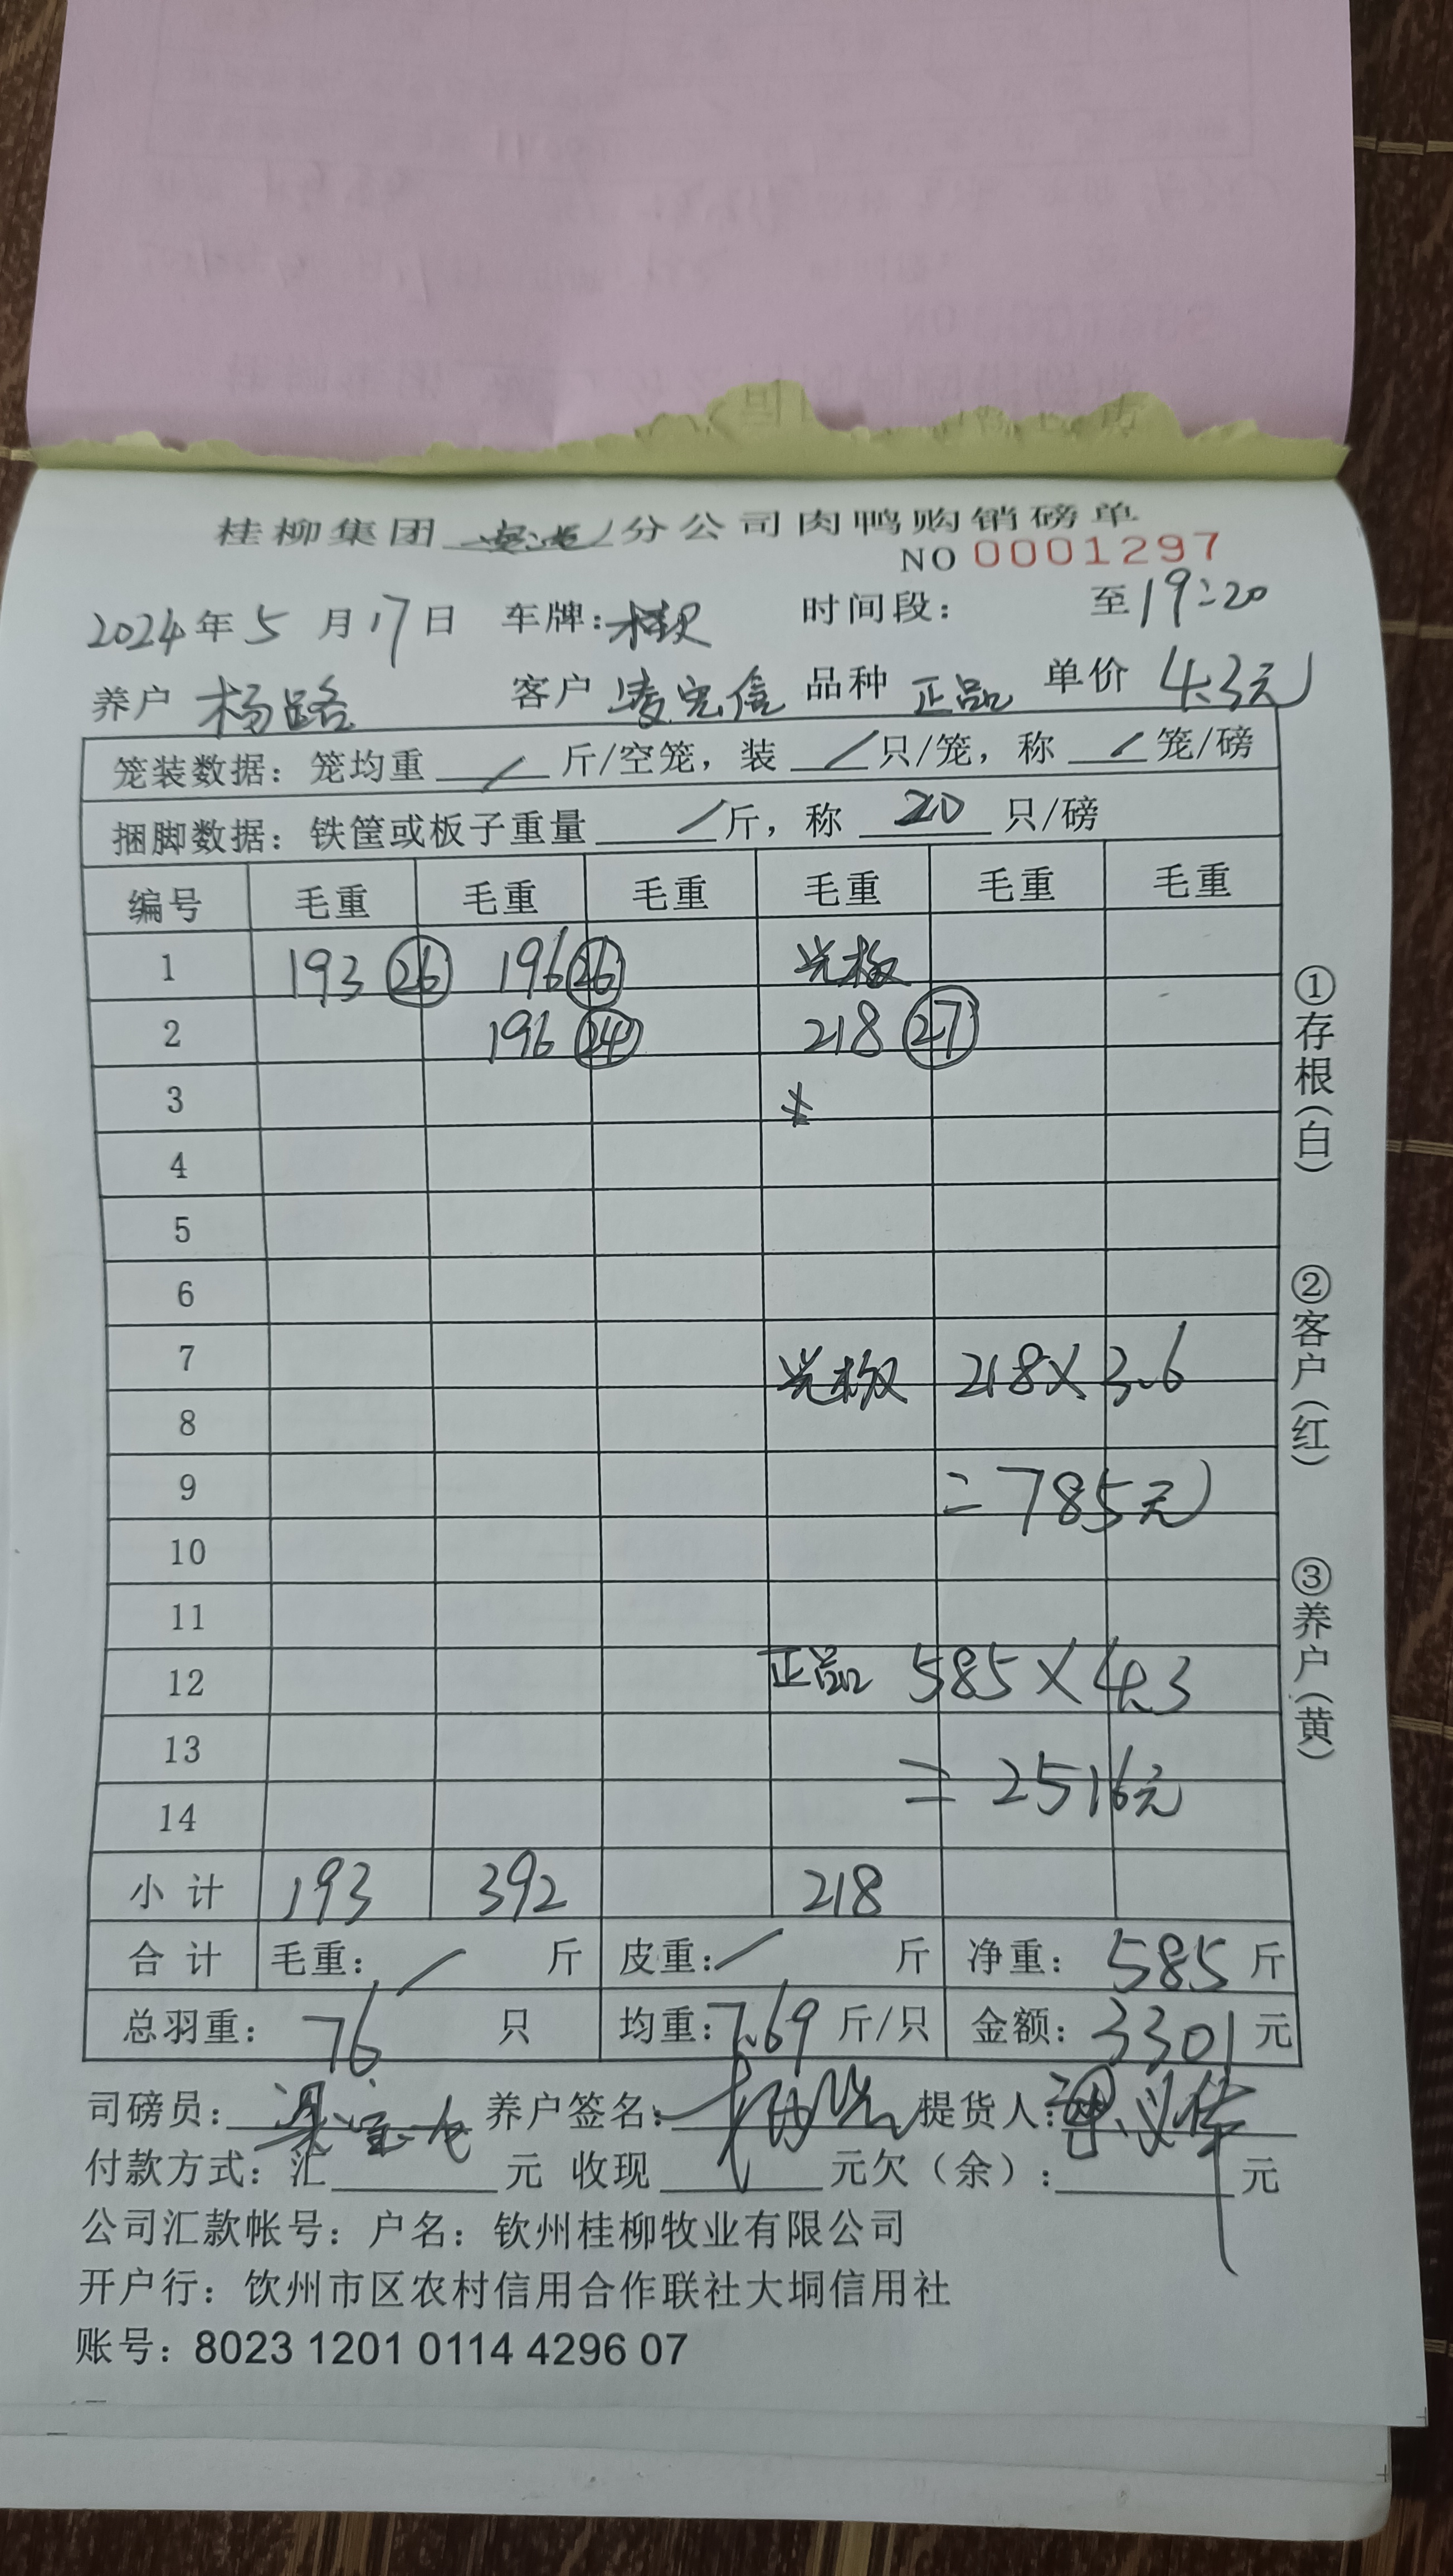 桂柳集团 分公司肉鸭购销磅单
NO 0001297
2024年5月17日 车牌: 时间段: 至19:20
养户 杨路 客户 凌宏信 品种 正品 单价 4.3元
笼装数据：笼均重 / 斤/空笼，装 / 只/笼，称 / 笼/磅
捆脚数据：铁筐或板子重量 / 斤，称 20 只/磅
编号 毛重 毛重 毛重 毛重 毛重 毛重
1 193 26 196 26
2 196 24 218 27
3
4
5
6
7 218×3.6
8
9 =785元
10
11
12 正品 585×4.3
13
14 =2516元
小计 193 392 218
合计 毛重: / 斤 皮重: / 斤 净重: 585 斤
总羽重: 76 只 均重: 7.69 斤/只 金额: 3301 元
司磅员: 养户签名: 提货人:
付款方式: 汇 元 收现 元欠（余）: 元
公司汇款帐号：户名：钦州桂柳牧业有限公司
开户行：钦州市区农村信用合作联社大垌信用社
账号：8023 1201 0114 4296 07
①存根（白）
②客户（红）
③养户（黄）